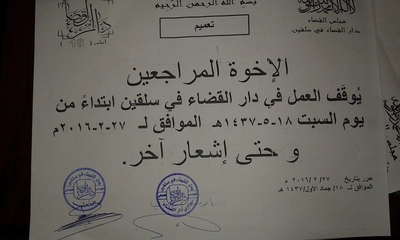 بسم الله الرحمن الرحيم
مجلس القضاء
دار القضاء في سلقين
تعميم
الإخوة المراجعين
يُوقَف العمل في دار القضاء في سلقين ابتداءً من
يوم السبت ١٨-٥-١٤٣٧هـ الموافق لـ ٢٧-٢-٢٠١٦م
و حتى إشعار آخر.
حرر بتاريخ ٢٧/ ٢/ ٢٠١٦ م
الموافق لـ ١٨/ جماد الأول/ ١٤٣٧هـ